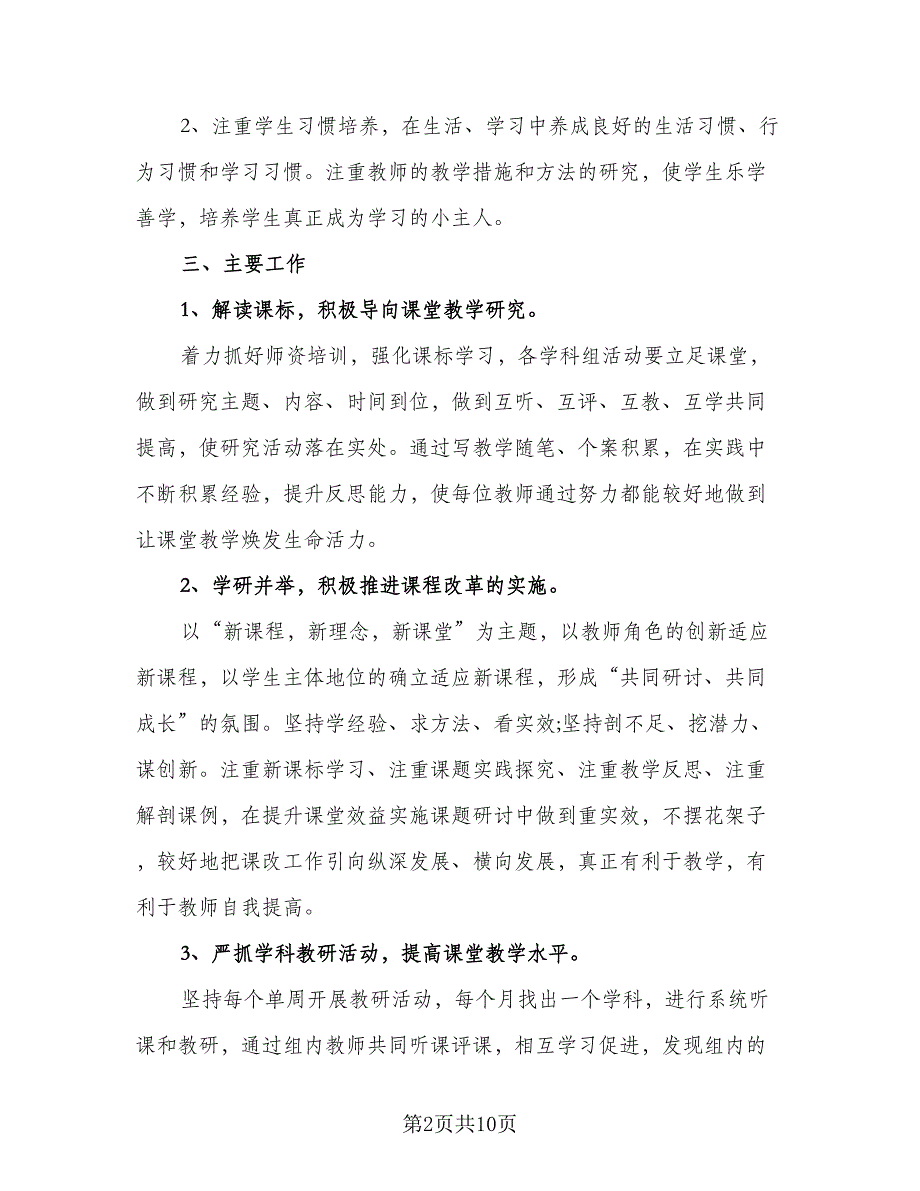 2、注重学生习惯培养，在生活、学习中养成良好的生活习惯、行
为习惯和学习习惯。注重教师的教学措施和方法的研究，使学生乐学
善学，培养学生真正成为学习的小主人。
三、主要工作
1、解读课标，积极导向课堂教学研究。
着力抓好师资培训，强化课标学习，各学科组活动要立足课堂，
做到研究主题、内容、时间到位，做到互听、互评、互教、互学共同
提高，使研究活动落在实处。通过写教学随笔、个案积累，在实践中
不断积累经验，提升反思能力，使每位教师通过努力都能较好地做到
让课堂教学焕发生命活力。
2、学研并举，积极推进课程改革的实施。
以“新课程，新理念，新课堂”为主题，以教师角色的创新适应
新课程，以学生主体地位的确立适应新课程，形成“共同研讨、共同
成长”的氛围。坚持学经验、求方法、看实效;坚持剖不足、挖潜力、
谋创新。注重新课标学习、注重课题实践探究、注重教学反思、注重
解剖课例，在提升课堂效益实施课题研讨中做到重实效，不摆花架子
，较好地把课改工作引向纵深发展、横向发展，真正有利于教学，有
利于教师自我提高。
3、严抓学科教研活动，提高课堂教学水平。
坚持每个单周开展教研活动，每个月找出一个学科，进行系统听
课和教研，通过组内教师共同听课评课，相互学习促进，发现组内的
第2页共10页